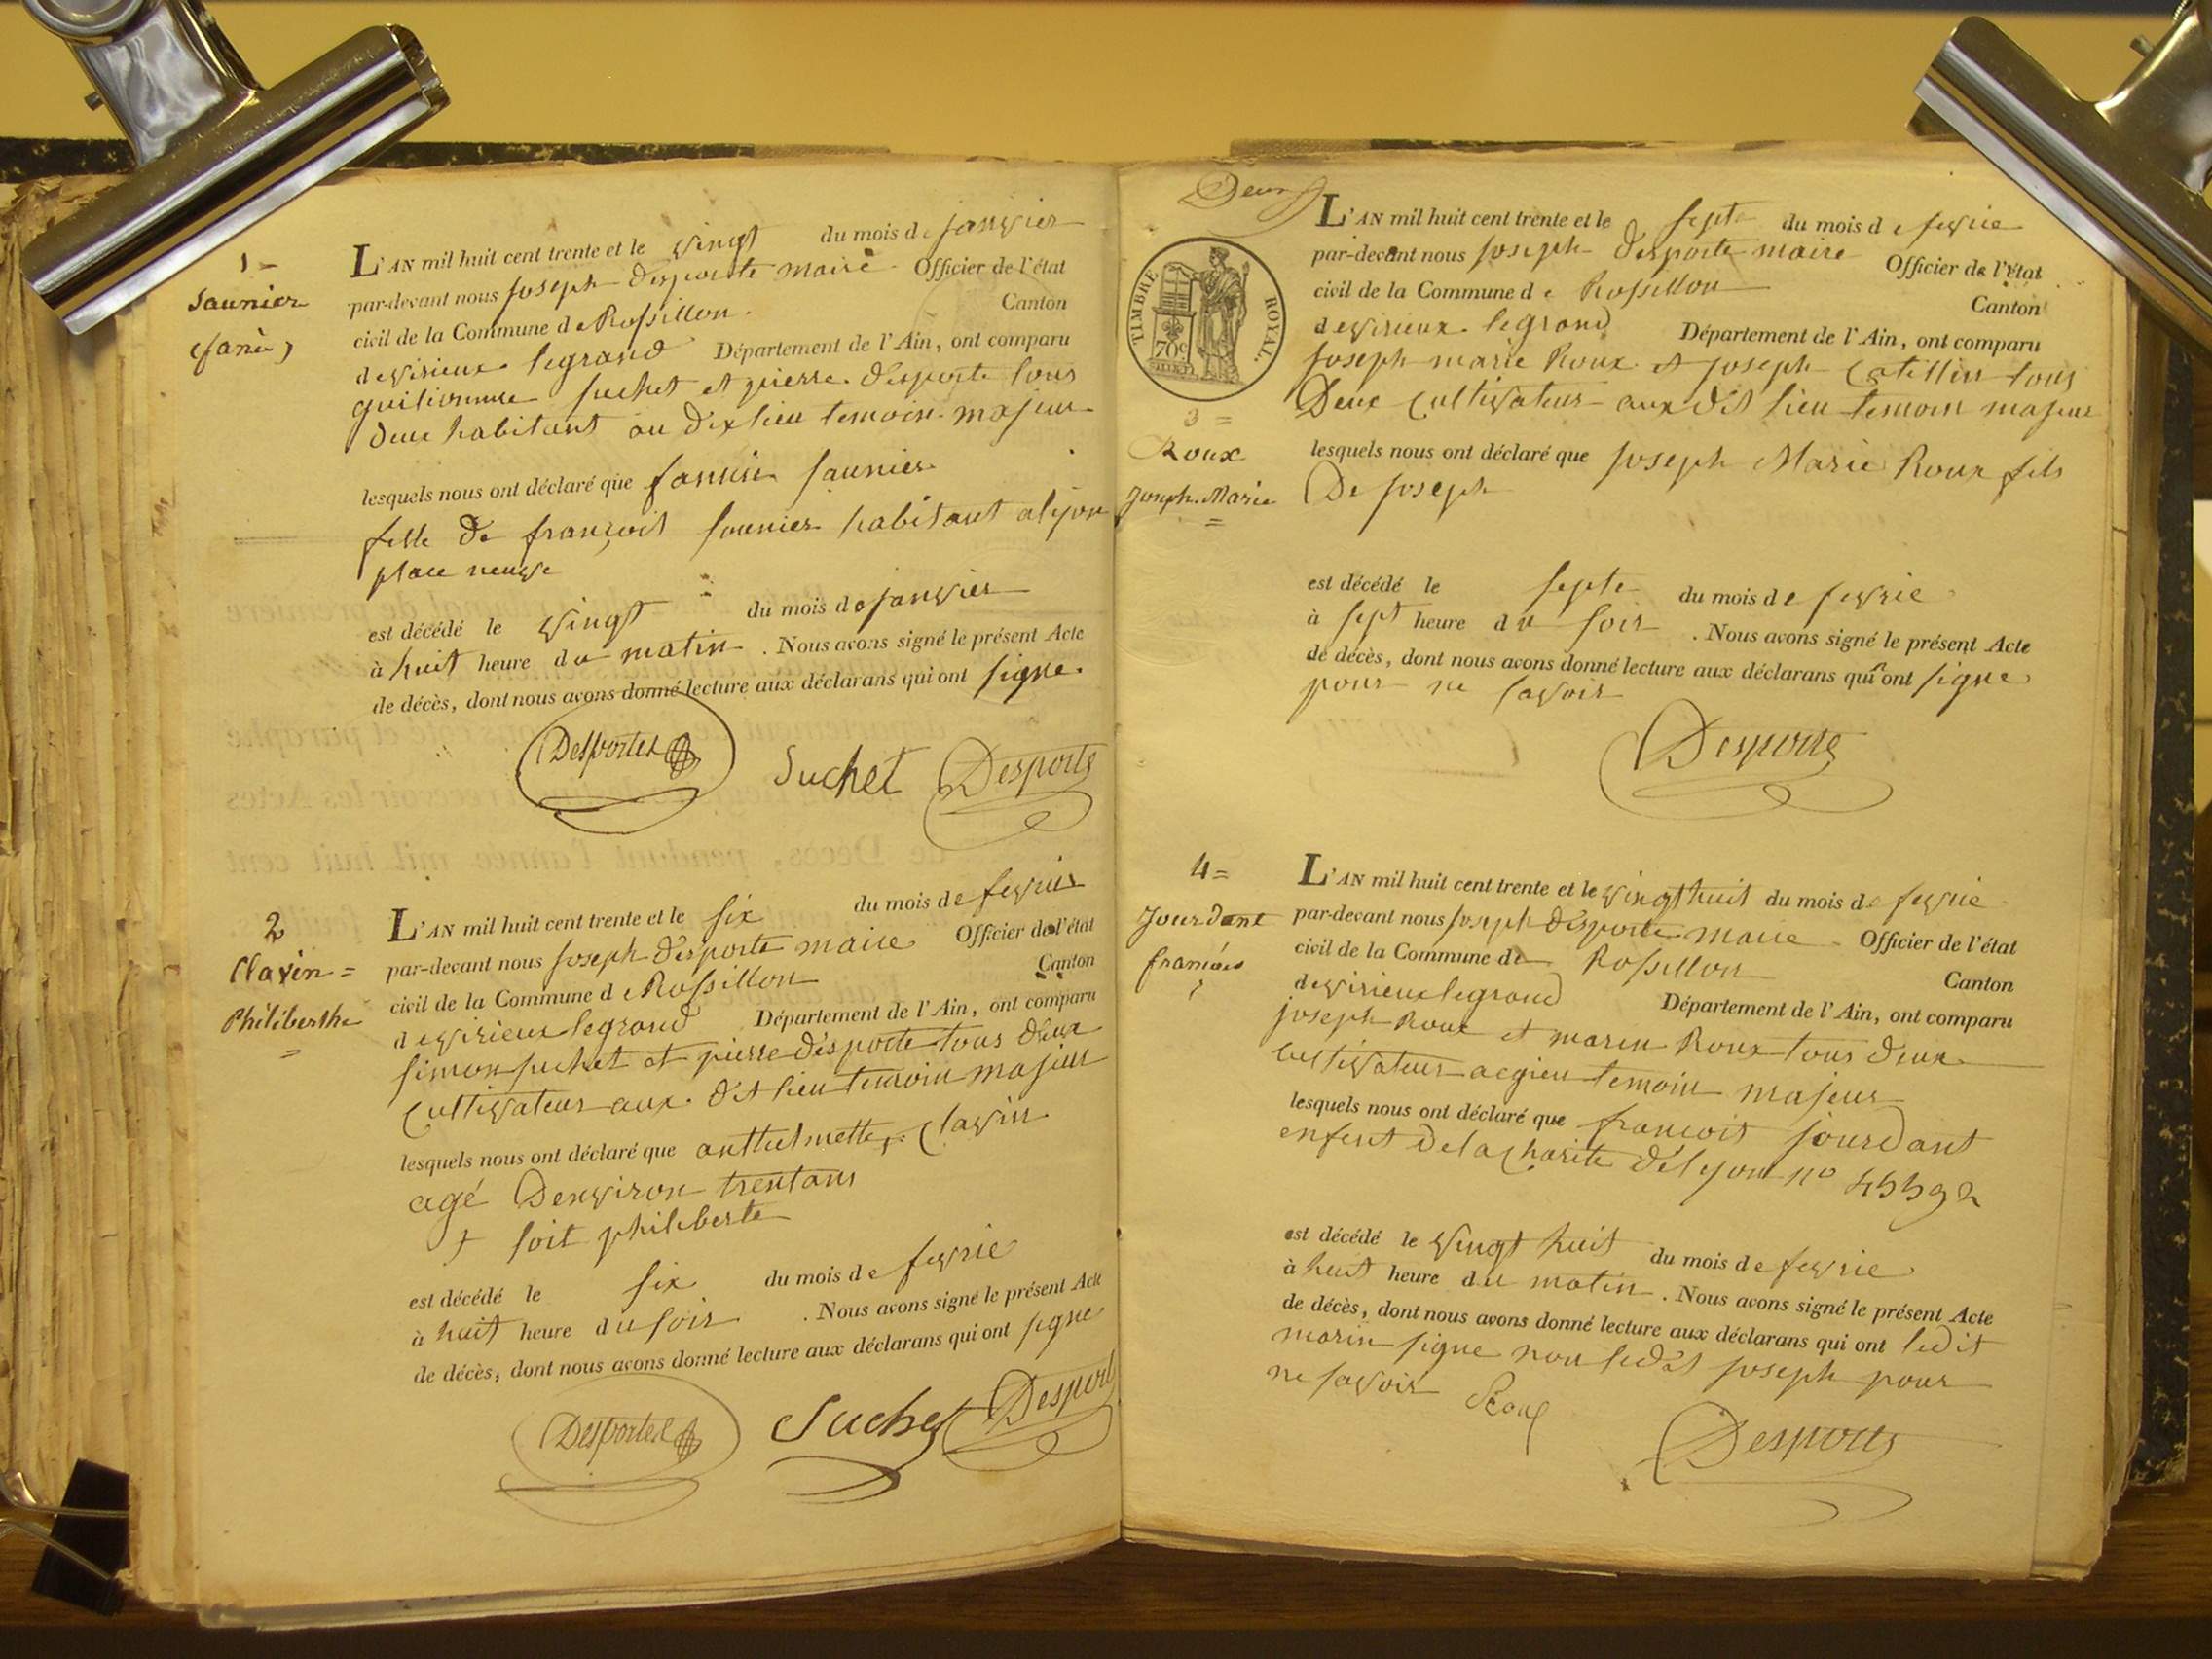 1 =
Saunier
L'AN mil huit cent trente et le vingt du mois de janvier
par-devant nous joseph desporte maire Officier de l'état
civil de la Commune de Rossillon. Canton
devirieux legrand Département de l'Ain, ont comparu
suchet et pierre desporte tous
deux habitant au dix lieu temoin majeur
lesquels nous ont déclaré que saunier
fille de françois saunier habitant alyon
place neuve
est décédé le vingt du mois de janvier
à huit heure du matin . Nous avons signé le présent Acte
de décès, dont nous avons donné lecture aux déclarans qui ont signe
Desportes Suchet Desporte
2
Clavin =
Philiberthe
=
L'AN mil huit cent trente et le six du mois de fevrier
par-devant nous joseph desporte maire Officier de l'état
civil de la Commune de Rossillon Canton
devirieux legrand Département de l'Ain, ont comparu
simon suchet et pierre desporte tous deux
cultivateur aux dit lieu temoin majeur
lesquels nous ont déclaré que anthelmette + clavin
agé denviron trentans
+ soit philiberte
est décédé le six du mois de fevrie
à huit heure du soir . Nous avons signé le présent Acte
de décès, dont nous avons donné lecture aux déclarans qui ont signe
Desportes Suchet Desporte
Deux
TIMBRE ROYAL.
70c
3 =
Roux
Joseph Marie
=
L'AN mil huit cent trente et le sept du mois de fevrie
par-devant nous joseph desporte maire Officier de l'état
civil de la Commune de Rossillon Canton
devirieux legrand Département de l'Ain, ont comparu
joseph marie Roux et joseph Catillin tous
Deux cultivateur aux dit lieu temoin majeur
lesquels nous ont déclaré que joseph Marie Roux fils
De joseph
est décédé le septe du mois de fevrie
à sept heure du soir . Nous avons signé le présent Acte
de décès, dont nous avons donné lecture aux déclarans qui n ont signe
pour ne savoir
Desporte
4 =
Jourdant
françois
L'AN mil huit cent trente et le vingt huit du mois de fevrie
par-devant nous joseph desporte maire Officier de l'état
civil de la Commune de Rossillon Canton
devirieux legrand Département de l'Ain, ont comparu
joseph Roux et marin Roux tous deux
cultivateur temoin majeur
lesquels nous ont déclaré que francoit jourdant
enfent delacharite delyon no
est décédé le vingt huit du mois de fevrie
à huit heure du matin . Nous avons signé le présent Acte
de décès, dont nous avons donné lecture aux déclarans qui ont ledit
marin signe non ledit joseph pour
ne savoir Roux
Desporte